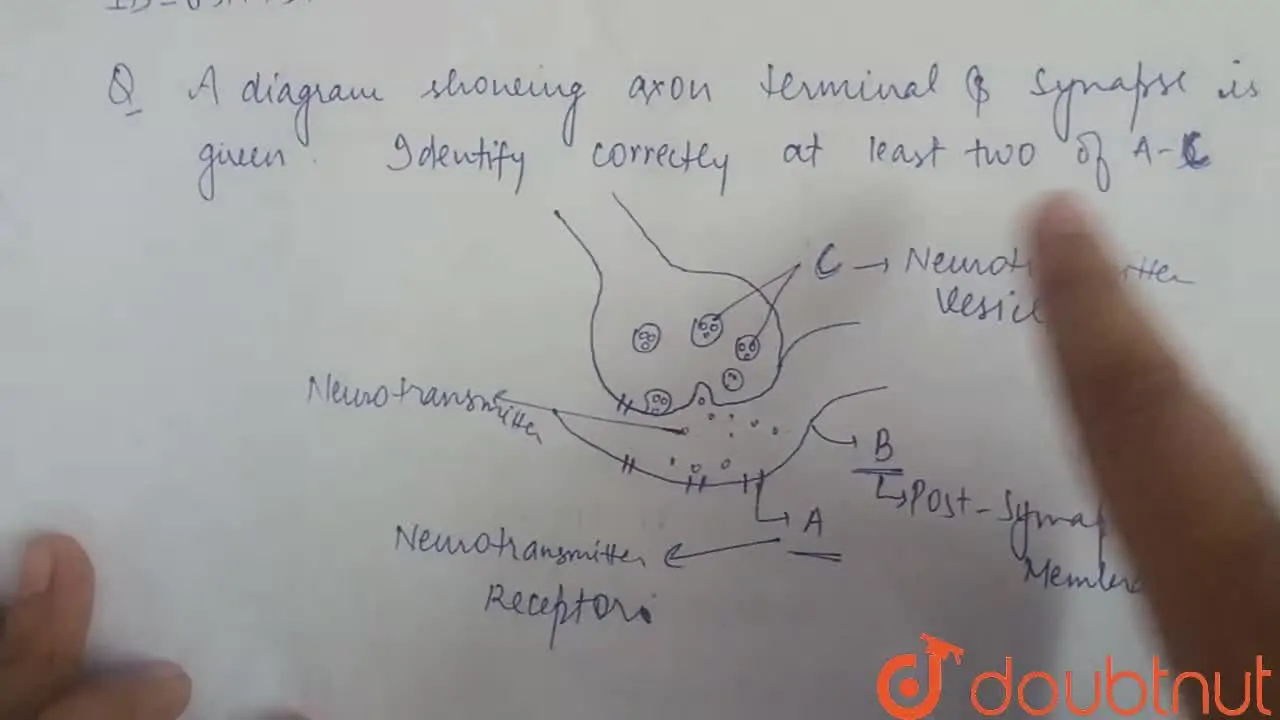 Q A diagram showing axon terminal & Synapse is
given. Identify correctly at least two of A-C
C → Neurot itter
Vesic
Neurotransmitter
B
Post-Synap
Membr
A
Neurotransmitter
Receptor
doubtnut